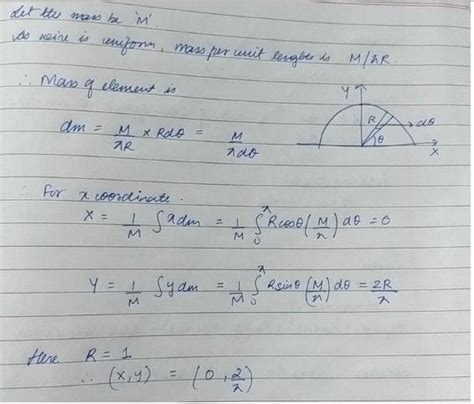 Let the mass be 'M'
As wire is uniform, mass per unit lenghts is M/πR.
∴ Mass of element is
dm = M/πR × Rdθ = M/πdθ
Y R dθ θ X
∴ For x coordinate.
X = 1/M ∫ x dm = 1/M ∫₀^π Rcosθ (M/π) dθ = 0
Y = 1/M ∫ y dm = 1/M ∫₀^π Rsinθ (M/π) dθ = 2R/π
Here R = 1
∴ (x, y) = (0, 2/π)